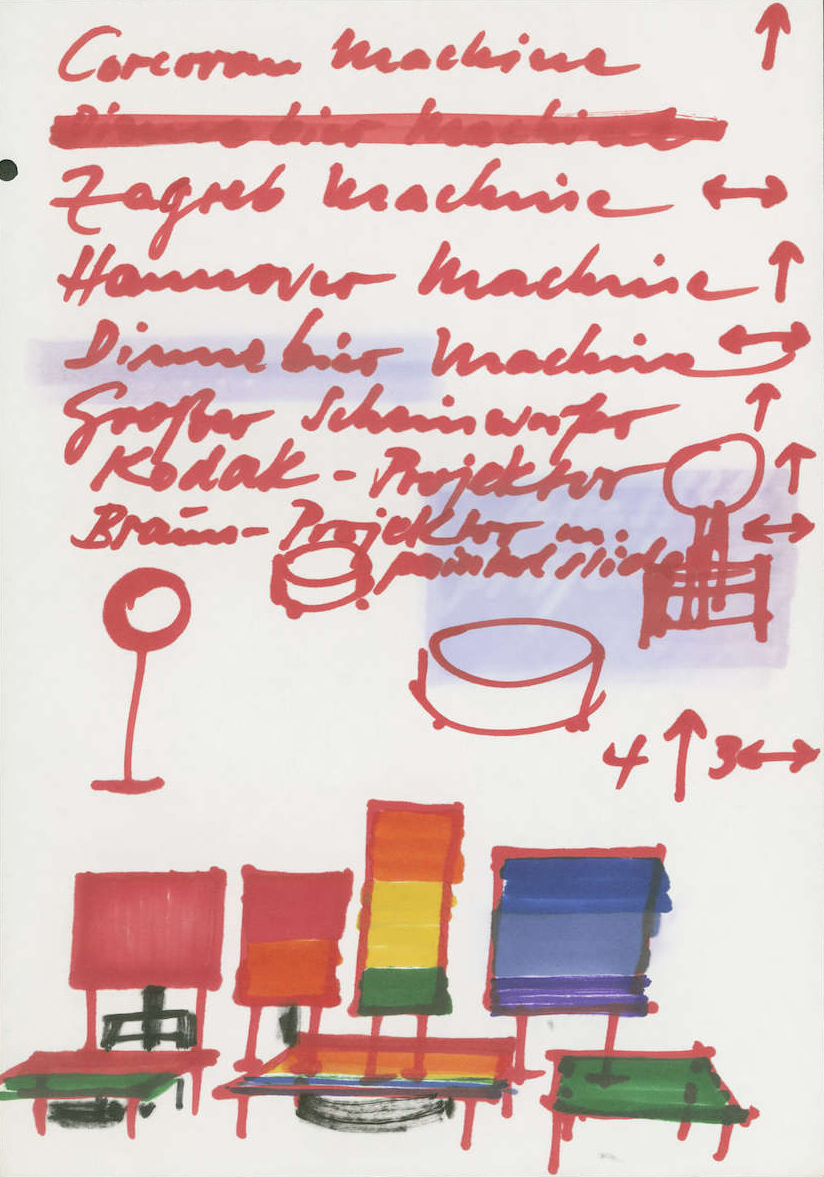 Corcoran Machine
Dinnebier Machine
Zagreb Machine
Hannover Machine
Dinnebier Machine
Großer Scheinwerfer
Kodak-Projektor
Braun-Projektor m.
painted slides
4 3